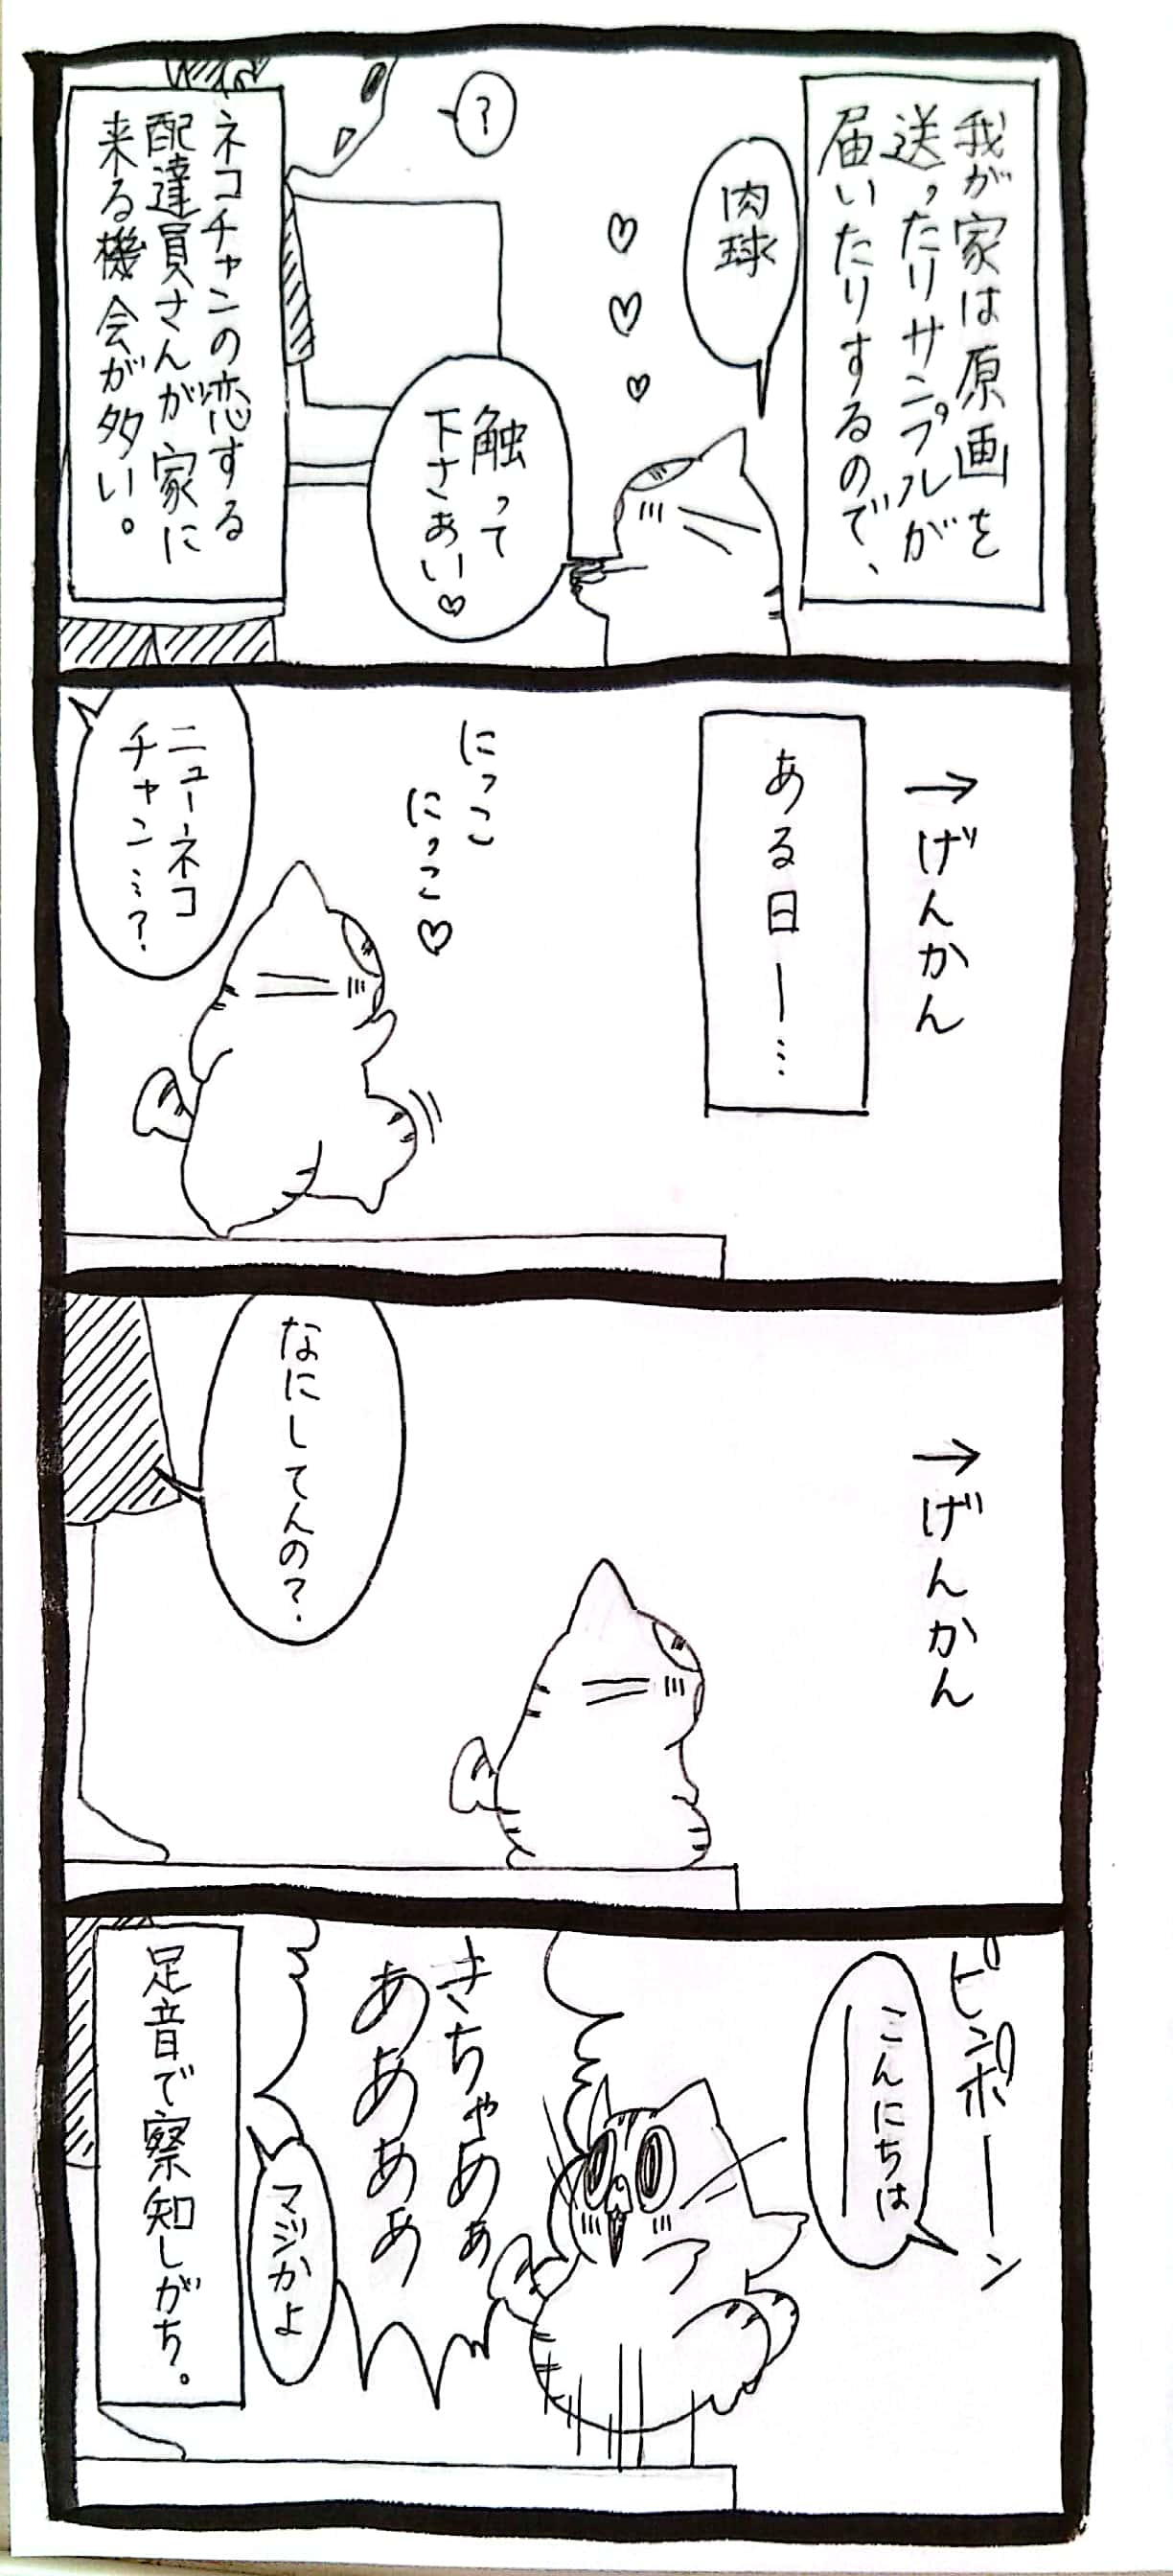 我が家は原画を
送ったりサンプルが
届いたりするので、
肉球
?
触って
下さぁい♡
ネコチャンの恋する
配達員さんが家に
来る機会が多い。
→げんかん
ある日ー…
にっこ
にっこ♡
ニューネコ
チャン…?
→げんかん
なにしてんの?
ピンポーン
こんにちは
きちゃめぁ
ああああ
マジかよ
足音で察知しがち。